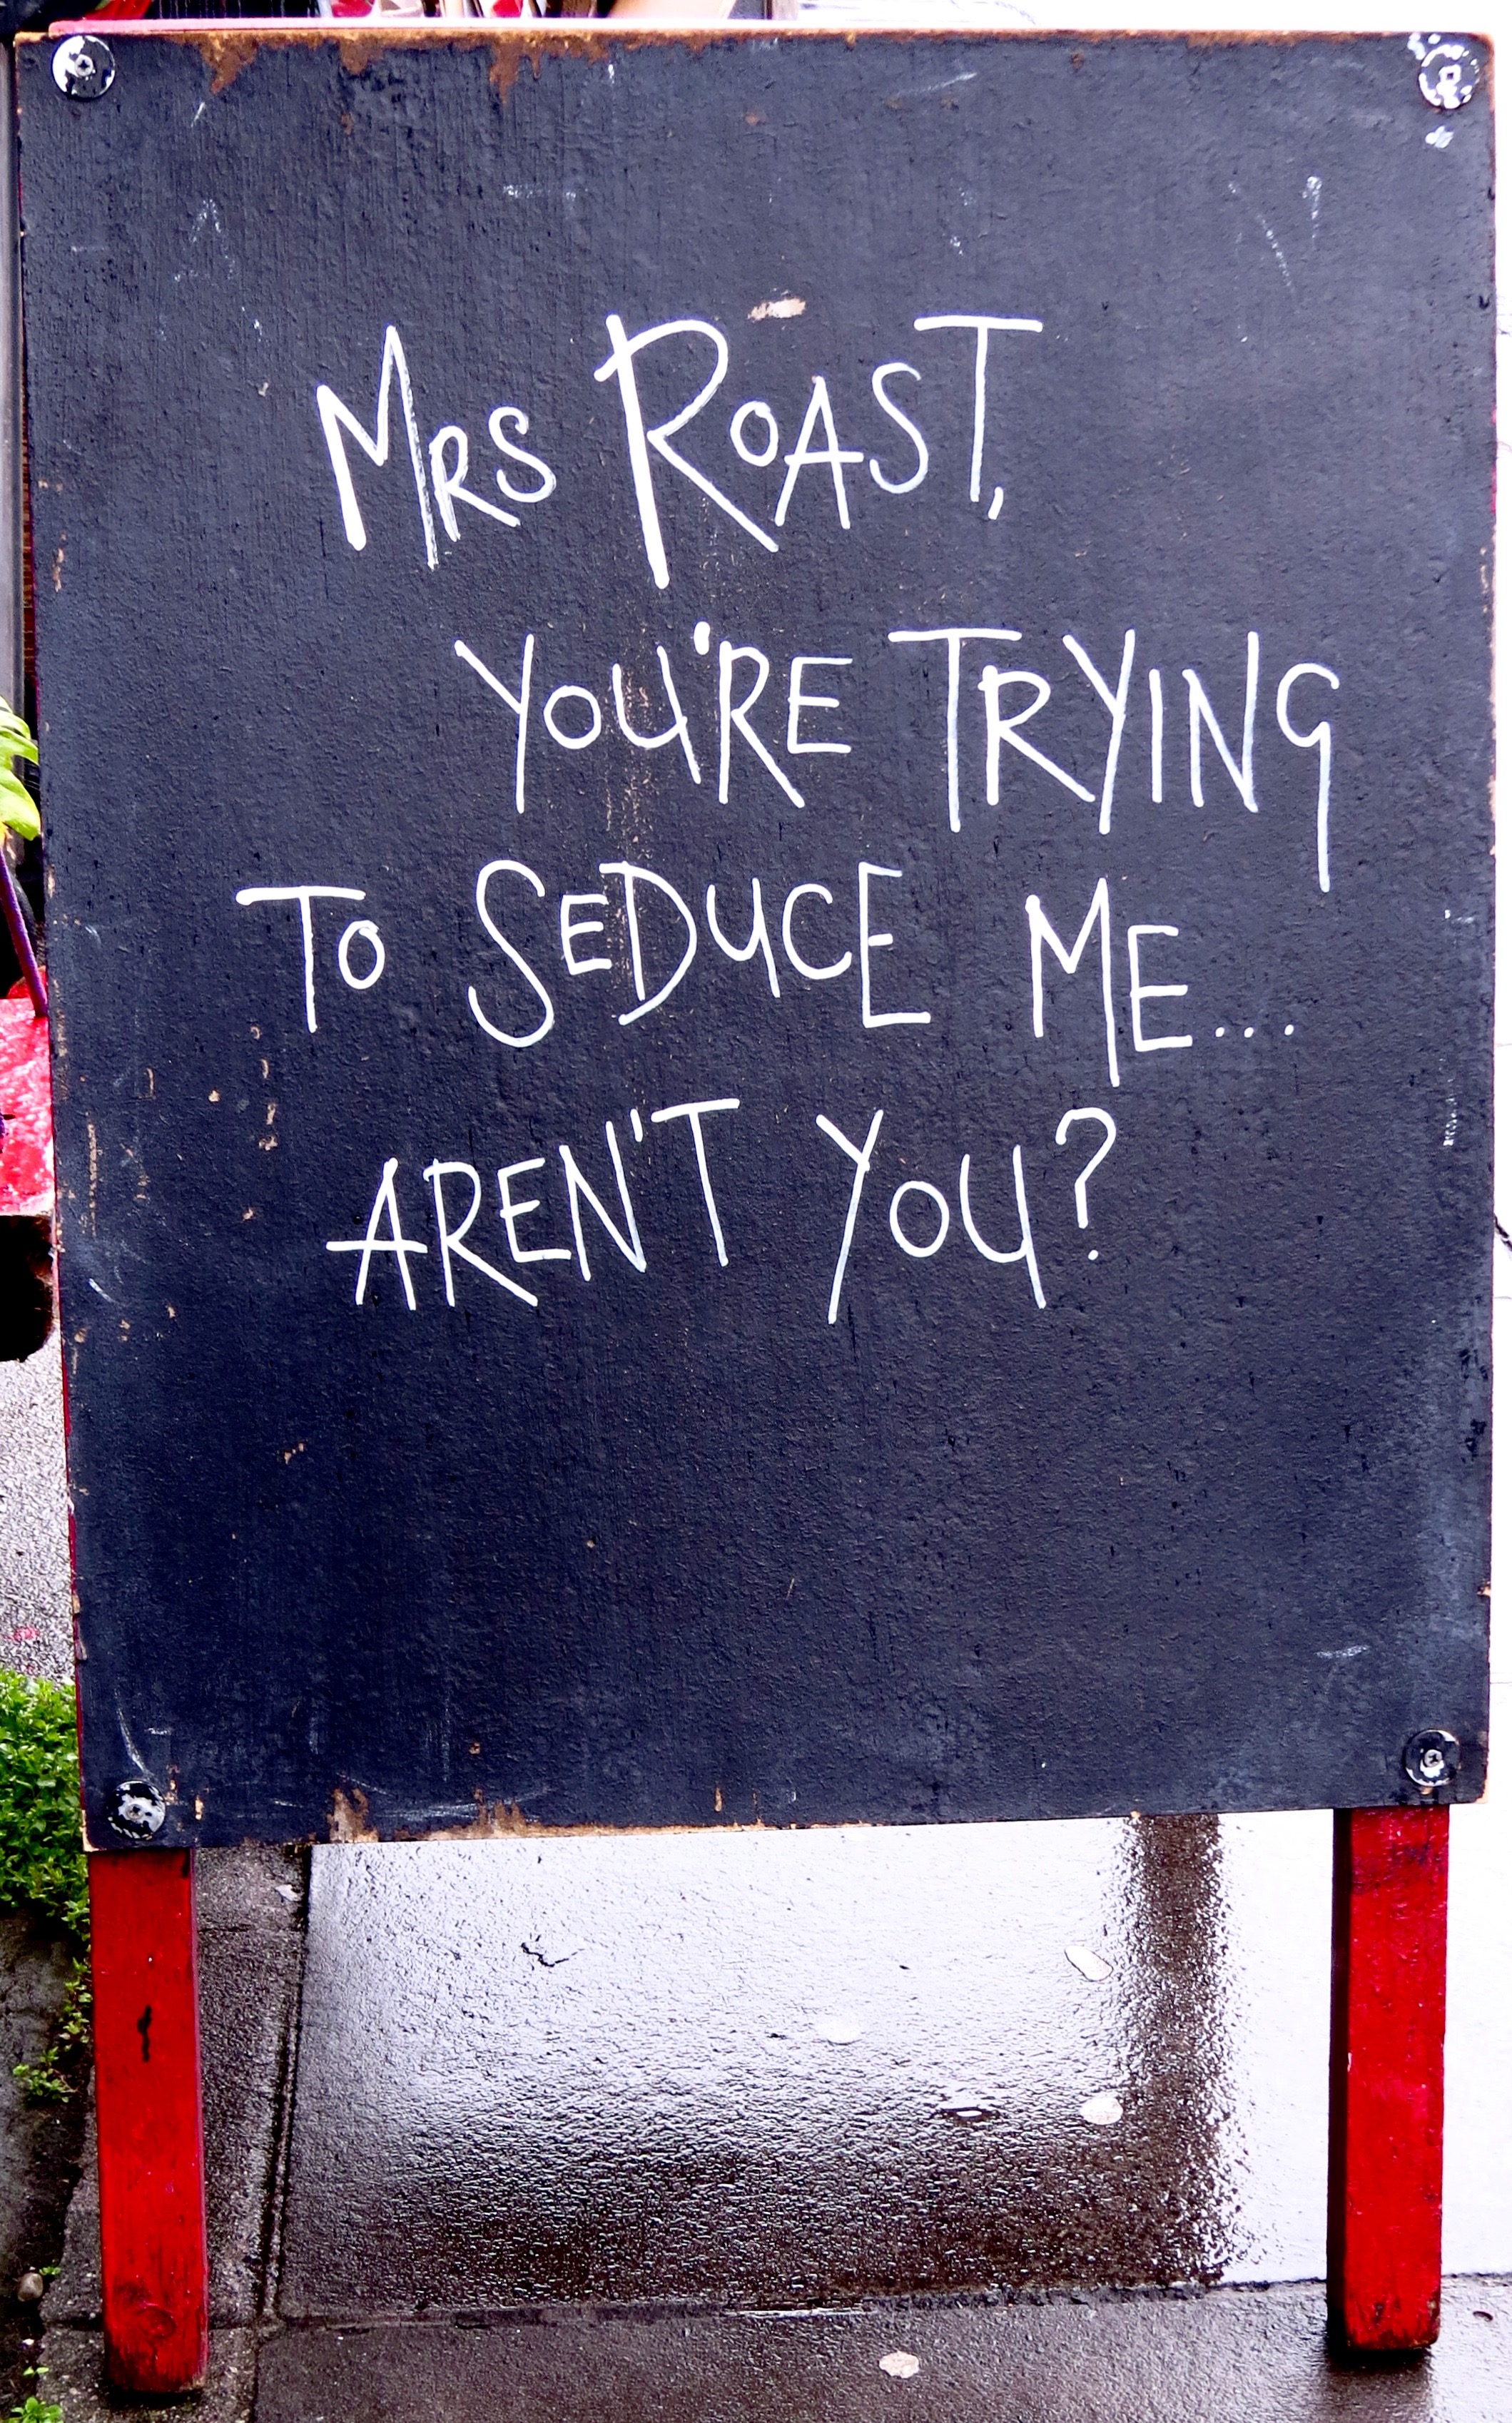 MRS ROAST,
YOU'RE TRYING
TO SEDUCE ME...
AREN'T YOU?